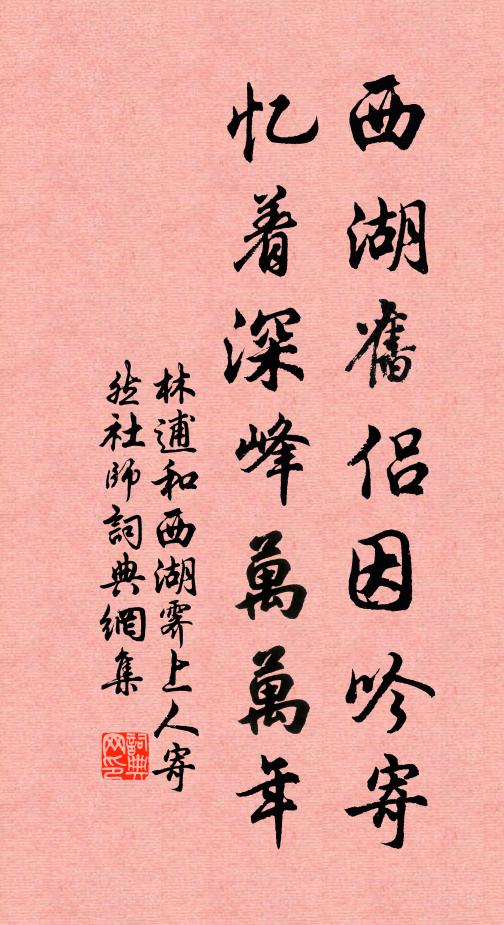 西湖舊侣因吟寄
忆着深峰萬萬年
林逋和西湖霁上人寄
然社師詞典網集
詞典网印